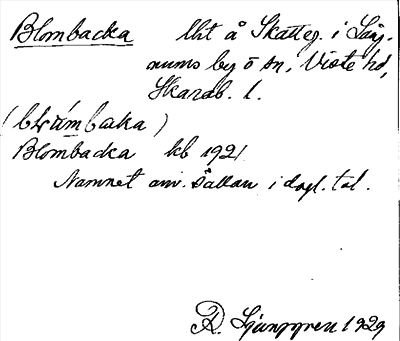 Blombacka lht å Skatteg. i Läng-
nums by o sn, Viste hd,
Skarab. l.
(blʉ́mbaka)
Blombacka kb 1921
Namnet anv. sällan i dagl. tal.
R. Ljunggren 1929